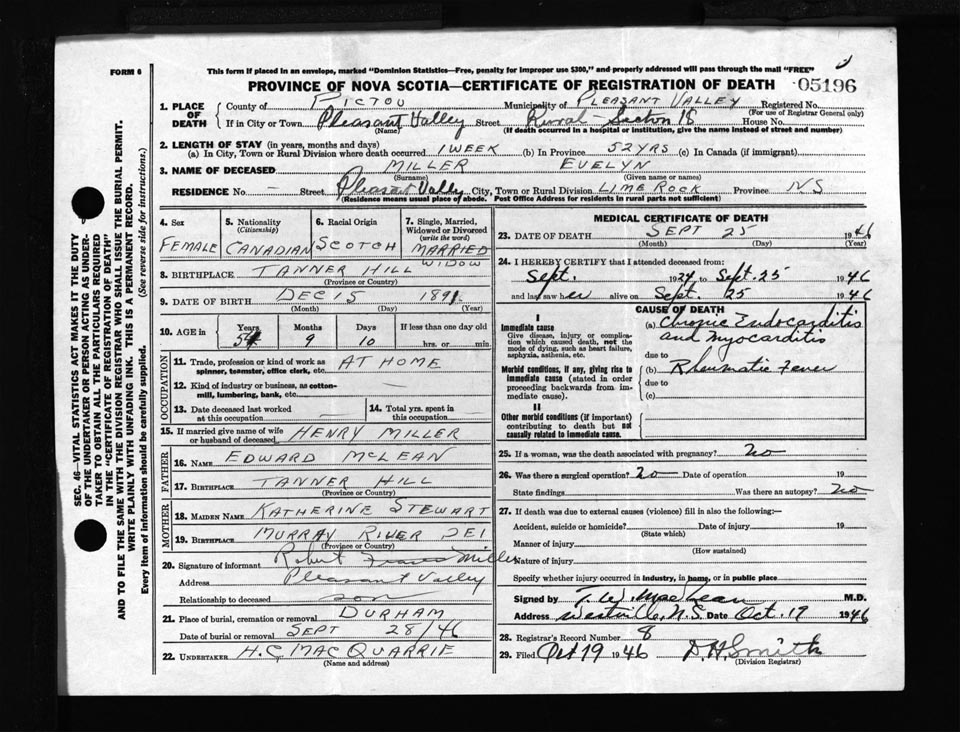 FORM 6
This form if placed in an envelope, marked "Dominion Statistics—Free, penalty for improper use $300," and properly addressed will pass through the mail "FREE"
PROVINCE OF NOVA SCOTIA—CERTIFICATE OF REGISTRATION OF DEATH
05196
1. PLACE OF DEATH
County of PICTOU Municipality of PLEASANT VALLEY Registered No.
(For use of Registrar General only)
If in City or Town Pleasant Valley Street Rural - Section 18 House No.
(Name) (If death occurred in a hospital or institution, give the name instead of street and number)
2. LENGTH OF STAY (in years, months and days)
(a) In City, Town or Rural Division where death occurred 1 WEEK (b) In Province 52 YRS (c) In Canada (if immigrant)
3. NAME OF DECEASED MILLER EVELYN
(Surname) (Given name or names)
RESIDENCE No. — Street Pleasant Valley City, Town or Rural Division LIME ROCK Province NS
(Residence means usual place of abode. Post Office Address for residents in rural parts not sufficient)
4. Sex
FEMALE
5. Nationality
(Citizenship)
CANADIAN
6. Racial Origin
SCOTCH
7. Single, Married, Widowed or Divorced
(write the word)
MARRIED
WIDOW
8. BIRTHPLACE TANNER HILL
(Province or Country)
9. DATE OF BIRTH DEC 15 1891
(Month) (Day) (Year)
10. AGE in Years Months Days If less than one day old
54 9 10 hrs. or min.
OCCUPATION
11. Trade, profession or kind of work as spinner, teamster, office clerk, etc. AT HOME
12. Kind of industry or business, as cotton-mill, lumbering, bank, etc. —
13. Date deceased last worked at this occupation
14. Total yrs. spent in this occupation
15. If married give name of wife or husband of deceased HENRY MILLER
FATHER
16. NAME EDWARD McLEAN
17. BIRTHPLACE TANNER HILL
(Province or Country)
MOTHER
18. MAIDEN NAME KATHERINE STEWART
19. BIRTHPLACE MURRAY RIVER PEI
(Province or Country)
20. Signature of informant Robert Miller
Address Pleasant Valley
Relationship to deceased son
21. Place of burial, cremation or removal DURHAM
Date of burial or removal SEPT 28/46
22. UNDERTAKER H.C. MACQUARRIE
(Name and address)
MEDICAL CERTIFICATE OF DEATH
23. DATE OF DEATH SEPT 25 1946
(Month) (Day) (Year)
24. I HEREBY CERTIFY that I attended deceased from:
Sept. 1924 to Sept. 25 1946
and last saw her alive on Sept. 25 1946
CAUSE OF DEATH
I
Immediate cause
Give disease, injury or complication which caused death, not the mode of dying, such as heart failure, asphyxia, asthenia, etc.
(a) Chronic Endocarditis
and Myocarditis
due to
Morbid conditions, if any, giving rise to immediate cause (stated in order proceeding backwards from immediate cause).
(b) Rheumatic Fever
due to
(c)
II
Other morbid conditions (if important) contributing to death but not causally related to immediate cause.
25. If a woman, was the death associated with pregnancy? no
26. Was there a surgical operation? no Date of operation 19
State findings Was there an autopsy? no
27. If death was due to external causes (violence) fill in also the following:—
Accident, suicide or homicide? Date of injury 19
(State which)
Manner of injury
(How sustained)
Nature of injury
Specify whether injury occurred in industry, in home, or in public place
Signed by T. W. MacLean M.D.
Address Westville, N.S. Date Oct. 19 1946
28. Registrar's Record Number 8
29. Filed Oct 19 1946 D.H. Smith
(Division Registrar)
SEC. 46—VITAL STATISTICS ACT MAKES IT THE DUTY
OF THE UNDERTAKER OR PERSON ACTING AS UNDER-
TAKER TO OBTAIN ALL THE PARTICULARS REQUIRED
IN THE "CERTIFICATE OF REGISTRATION OF DEATH"
AND TO FILE THE SAME WITH THE DIVISION REGISTRAR WHO SHALL ISSUE THE BURIAL PERMIT.
WRITE PLAINLY WITH UNFADING INK. THIS IS A PERMANENT RECORD.
Every item of information should be carefully supplied. (See reverse side for instructions.)